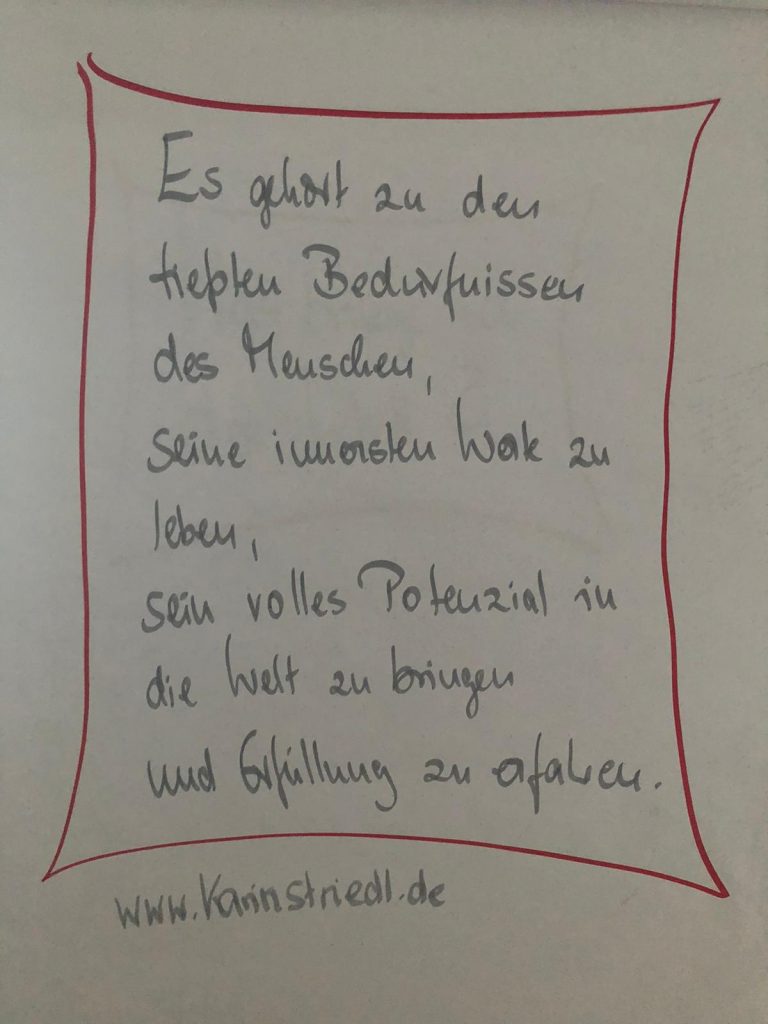 Es gehört zu den
tiefsten Bedürfnissen
des Menschen,
seine innersten Werte zu
leben,
sein volles Potenzial in
die Welt zu bringen
und Erfüllung zu erfahren.
www.Karinstriedl.de